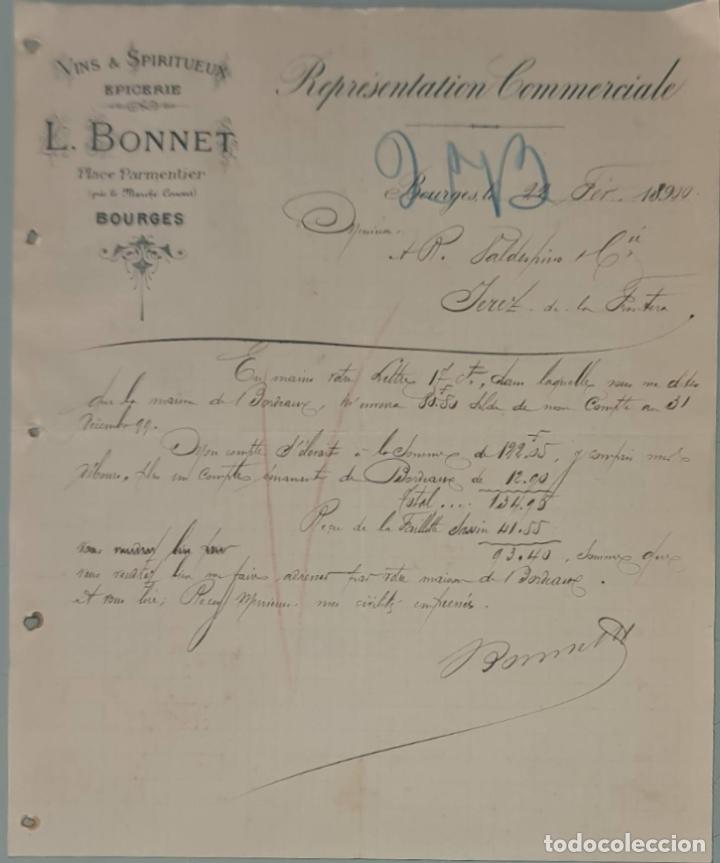 VINS & SPIRITUEUX
EPICERIE
L. BONNET
Place Parmentier
(près le Marché Couvert)
BOURGES
Représentation Commerciale
Bourges, le 22 Fév. 1890
Messieurs
A. R. Valdespino & Cie
Jerez de la Frontera
En mains votre lettre 17 ct, dans laquelle vous me dites
que la maison de Bordeaux, 80.80 solde de mon Compte au 31
Décembre 99.
Mon compte s'élevait à la Somme de 122.05, y compris mes
débours, plus un Compte émanant de Bordeaux de 12.90
Total .... 134.95
Reçu de la 41.55
93.40, Somme que
vous voudrez bien par
vous voudrez bien me faire adresser par votre maison de Bordeaux.
A vous lire; Recevez Messieurs mes civilités empressées.
Bonnet
todocoleccion.net